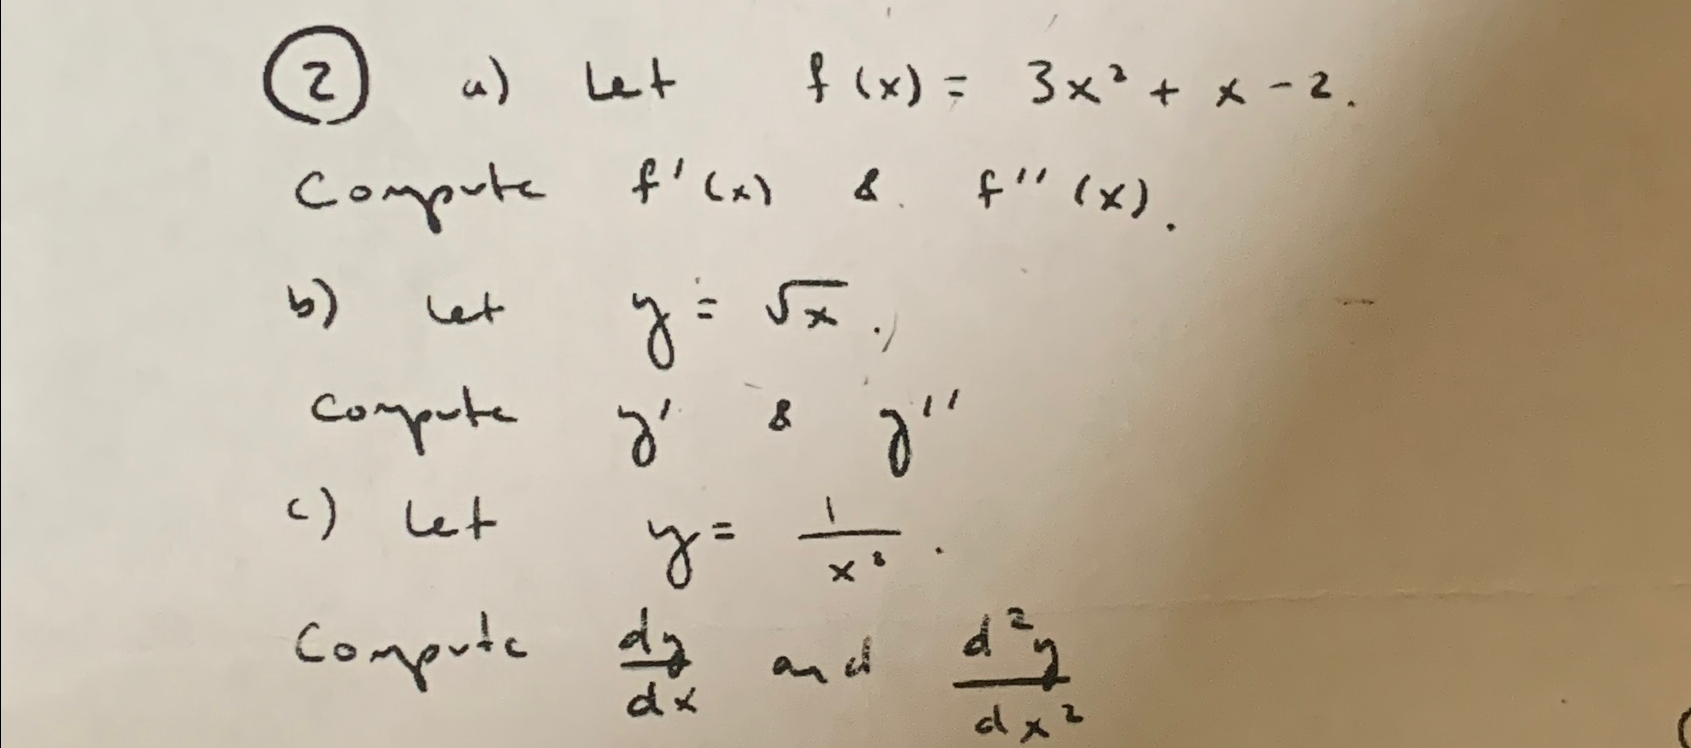 ② a) Let f(x) = 3x² + x - 2.
Compute f'(x) & f''(x).
b) Let y = √x.
Compute y' & y''
c) Let y = 1/x².
Compute dy/dx and d²y/dx²